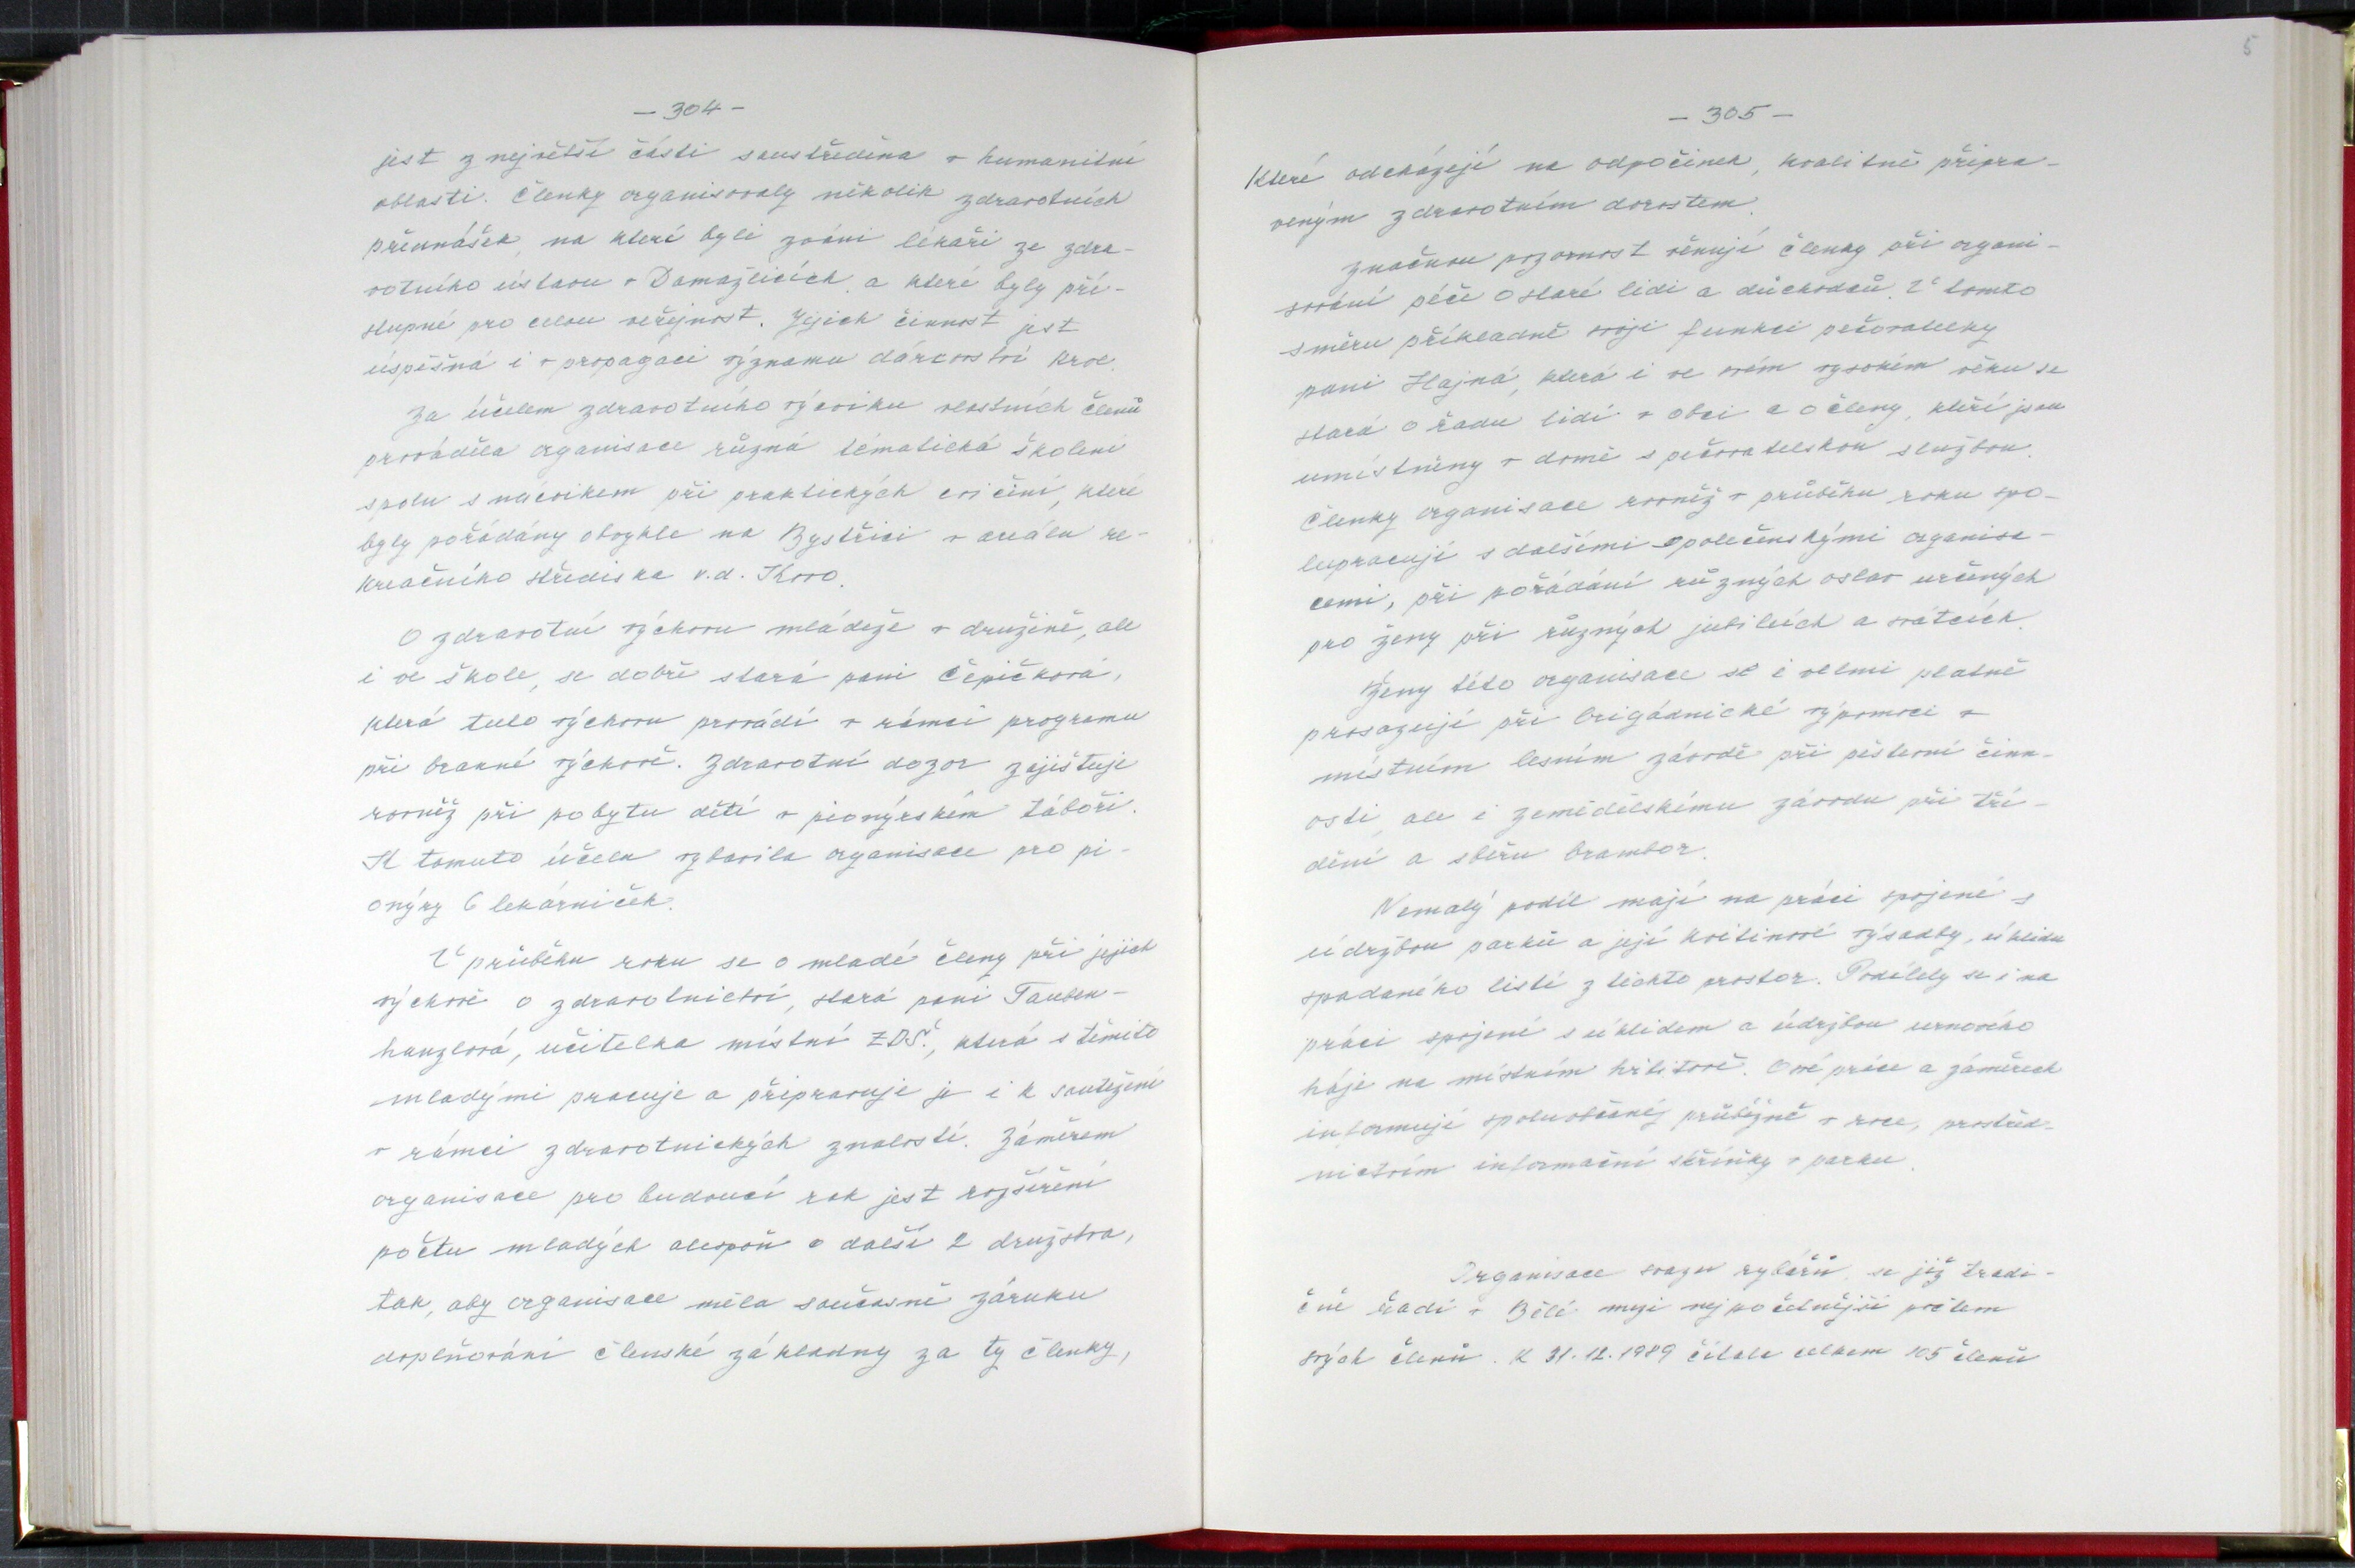 - 304 -
jest z největší části soustředěna v humanitní
oblasti. Členky organisovaly několik zdravotních
přednášek, na které byli zváni lékaři ze zdra-
votního ústavu v Domažlicích, a které byly pří-
stupné pro celou veřejnost. Jejich činnost jest
úspěšná i v propagaci významu dárcovství krve.
Za účelem zdravotního výcviku vlastních členů
prováděla organisace různá tématická školení
spolu s nácvikem při praktických cvičení, které
byly pořádány obvykle na Bystřici v areálu re-
kreačního střediska v.d. Kovo.
O zdravotní výchovu mládeže v družině, ale
i ve škole, se dobře stará paní Čepičková,
která tuto výchovu provádí v rámci programu
při branné výchově. Zdravotní dozor zajištuje
rovněž při pobytu dětí v pionýrském táboře.
K tomuto účelu vybavila organisace pro pi-
onýry 6 lekárniček.
V průběhu roku se o mladé členy při jejich
výchově o zdravotnictví, stará paní Tauben-
hanzlová, učitelka místní ZDŠ., která s těmito
mladými pracuje a připravuje je i k soutěžení
v rámci zdravotnických znalostí. Záměrem
organisace pro budoucí rok jest rozšíření
počtu mladých alespoň o další 2 družstva,
tak, aby organisace měla současně záruku
doplňování členské základny za ty členky,
5
- 305 -
které odcházejí na odpočinek, kvalitně připra-
veným zdravotním dorostem.
Značnou pozornost věnují členky při organi-
sování péče o staré lidi a důchodců. V tomto
směru příkladně svoji funkci pečovatelky
paní Hajná, která i ve svém vysokém věku se
stará o řadu lidí v obci a o členy, kteří jsou
umístněny v domě s pečovatelskou službou.
Členky organisace rovněž v průběhu roku spo-
lupracují s dalšími společenskými organisa-
cemi, při pořádání různých oslav určených
pro ženy při různých jubileích a svátcích.
Ženy této organisace se i velmi platně
prosazují při brigádnické výpomoci v
místním lesním závodě při pěstevní činn-
osti, ale i zemědělskému závodu při tří-
dění a sběru brambor.
Nemalý podíl mají na práci spojené s
údržbou parků a její květinové výsadby, úklidu
spadaného listí z těchto prostor. Podílely se i na
práci spojené s úklidem a údržbou urnového
háje na místním hřbitově. O své práce a záměrech
informují spoluobčany průběžně v roce, prostřed-
nictvím informační skříňky v parku.
Organisace svazu rybářů, se již tradi-
čně řadí v Bělé mezi nejpočetnější počtem
svých členů. K 31.12.1989 čítala celkem 105 členů